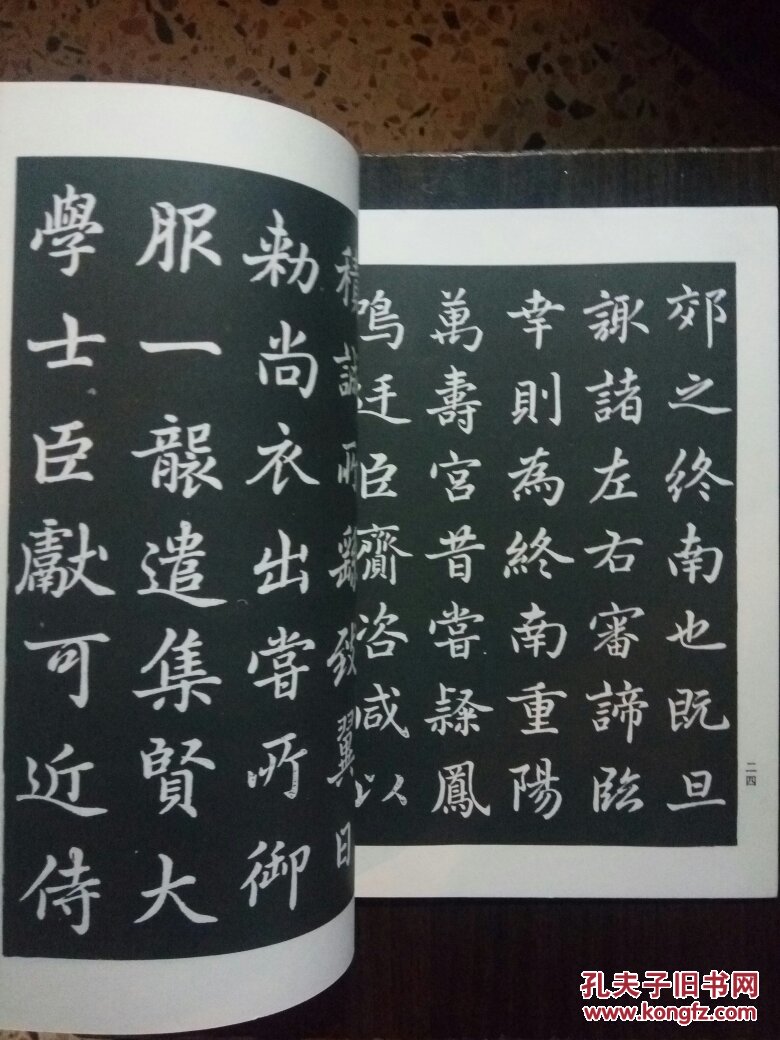 郊之終南也既旦
諏諸左右審諦臨
幸則為終南重陽
萬壽宮昔嘗隸鳳
鳴廷臣齎咨咸以
積誠所致翼日
勅尚衣出嘗所御
服一襲遣集賢大
學士臣獻可近侍
二四
孔夫子旧书网
www.kongfz.com